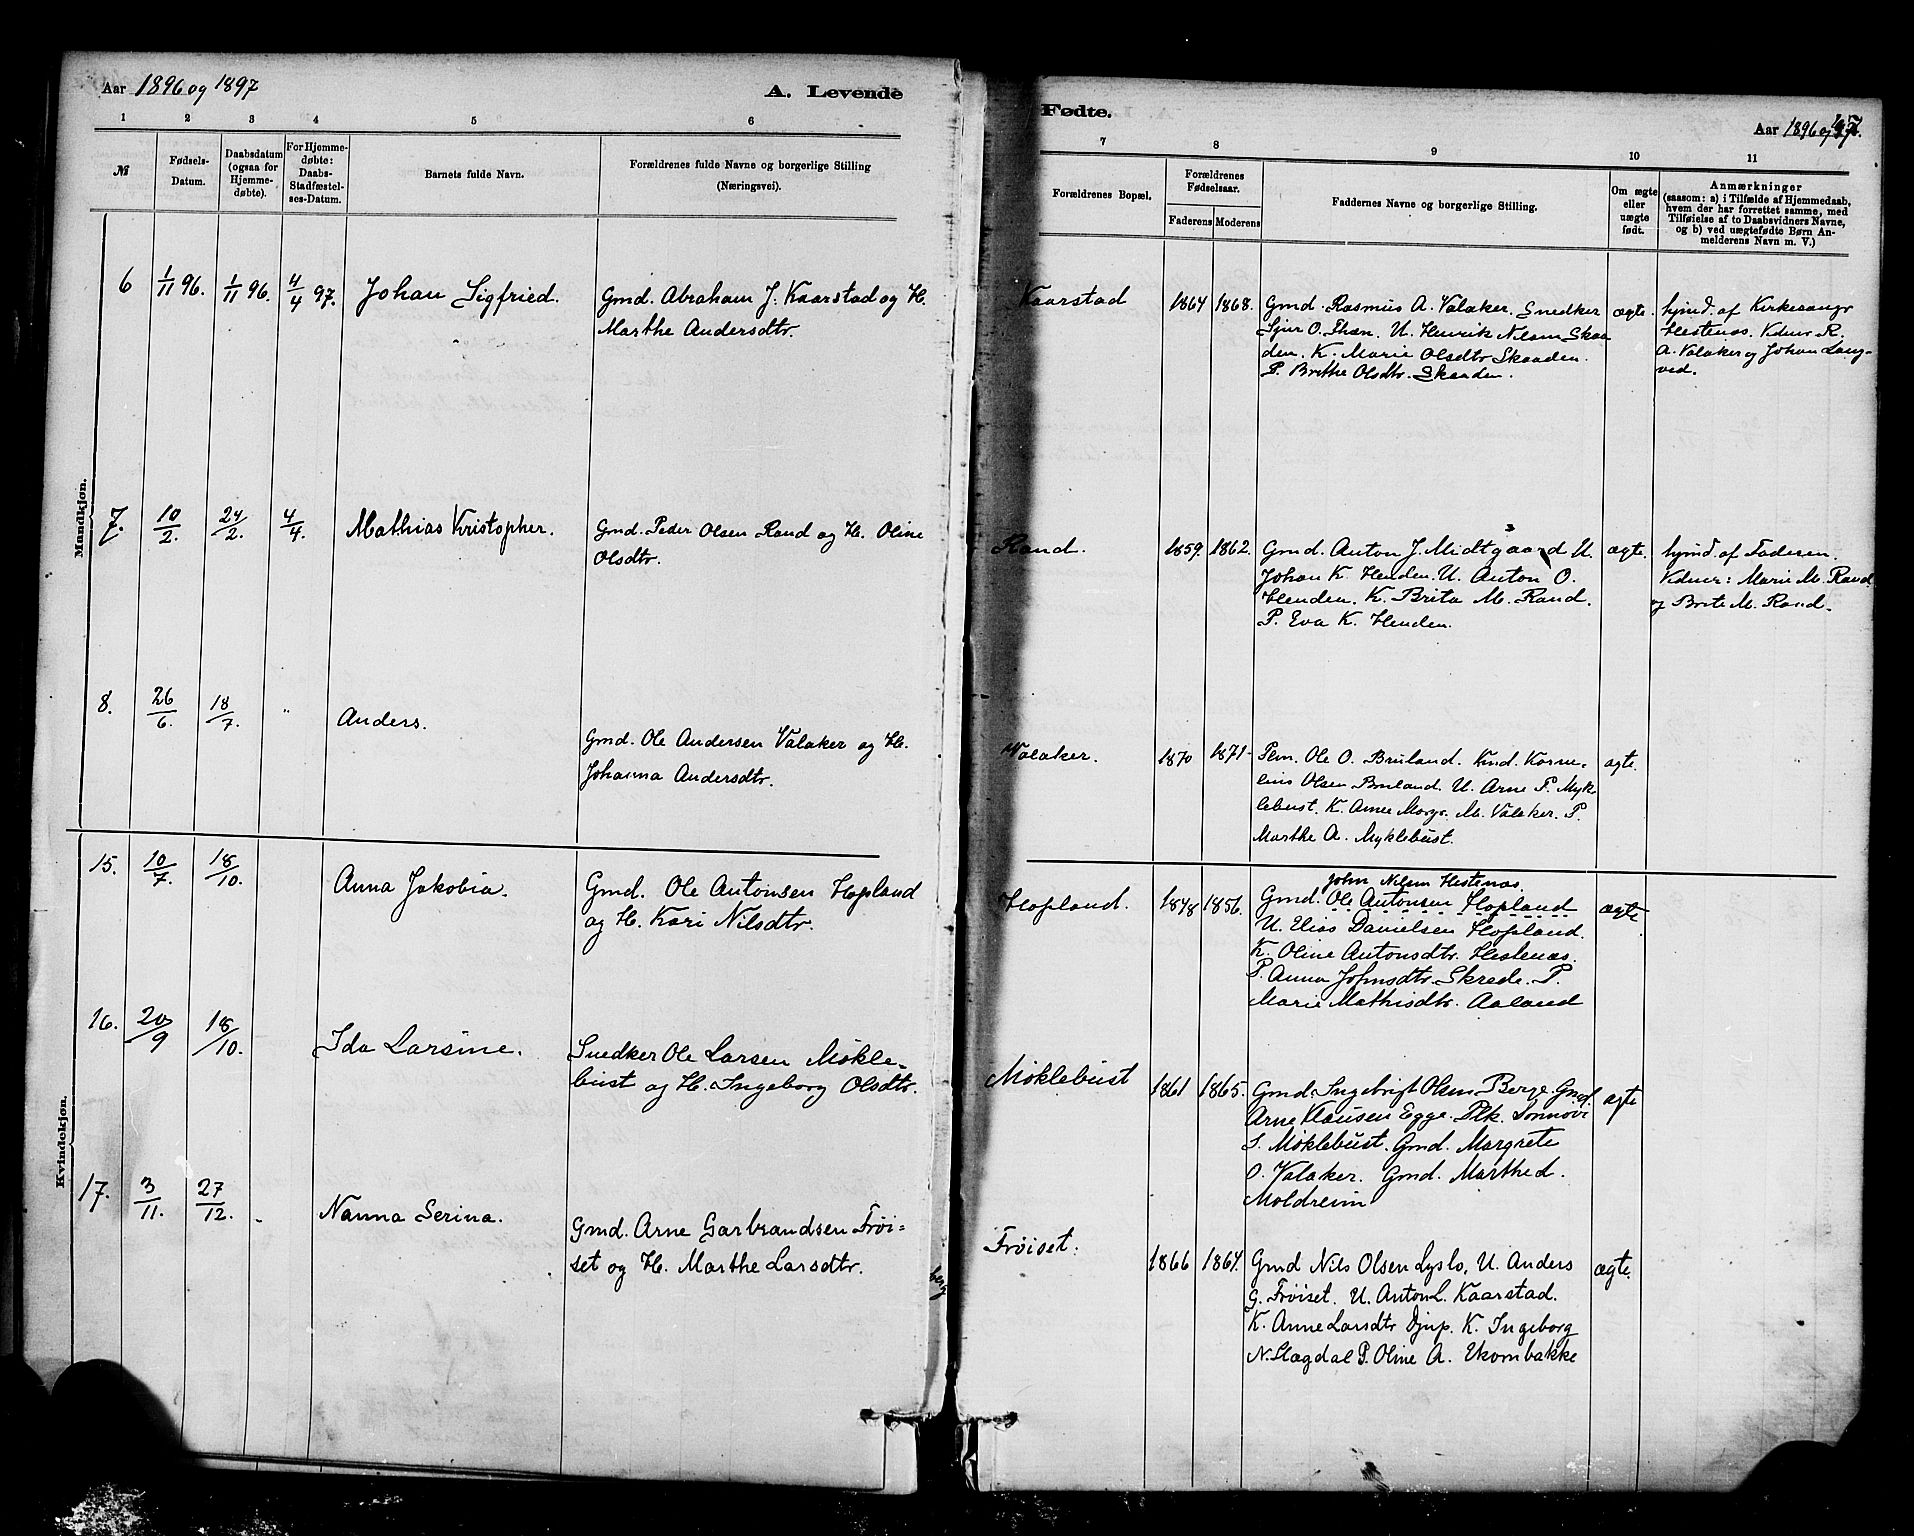 Aar 1896 og 1897
A. Levende
1 2 3 4 5 6
№
Fødsels-
Datum.
Daabsdatum
(ogsaa for
Hjemme-
døbte).
For Hjemme-
døbte:
Daabs-
Stadfæstel-
ses-Datum.
Barnets fulde Navn.
Forældrenes fulde Navne og borgerlige Stilling
(Næringsvei).
Mandkjøn.
6 1/11 96. 1/11 96. 4/4 97. Johan Sigfried. Gmd. Abraham J. Kaarstad og H.
Marthe Andersdtr.
7. 10/2. 24/2. 4/4. Mathias Kristopher. Gmd. Peder Olsen Rand og H. Oline
Olsdtr.
8. 26/6. 18/7. " Anders.
Gmd. Ole Andersen Valaker og H.
Johanna Andersdtr.
Kvindekjøn.
15. 10/7. 18/10. Anna Jakobia. Gmd. Ole Antonsen Hopland
og H. Kari Nilsdtr.
16. 20/9 18/10. Ida Larsine. Snedker Ole Larsen Møkle-
bust og H. Ingeborg Olsdtr.
17. 3/11. 27/12. Nanna Serina. Gmd. Arne Garbrandsen Frøi-
set og H. Marthe Larsdtr.
berg
Fødte.
Aar 1896 og 97.
7 8 9 10 11
Forældrenes Bopæl.
Forældrenes
Fødselsaar.
Faderens Moderens
Faddernes Navne og borgerlige Stilling.
Om ægte
eller
uægte
født.
Anmærkninger
(saasom: a) i Tilfælde af Hjemmedaab,
hvem der har forrettet samme, med
Tilføielse af to Daabsvidners Navne,
og b) ved uægtefødte Børn An-
melderens Navn m. V.)
Kaarstad 1864 1868. Gmd. Rasmus A. Valaker, Snedker ægte. hjmd. af Kirkesangr
Sjur O. Thæn. U. Henrik Nilsen Skaa Hestenæs. Kdner R.
den. K. Marie Olsdtr Skaaden. A. Valaker og Johan Lang-
P. Brithe Olsdtr. Skaaden. ved.
Rand. 1859. 1862. Gmd. Anton J. Midtgaard U. ægte. hjmd. af Faderen.
Johan K. Henden. U. Anton O. Kdner: Marie M. Rand
Henden. K. Brita M. Rand. og Brite M. Rand.
P. Eva K. Henden.
Valaker. 1870 1871. Pem. Ole O. Bruland. Kmd. Korne- ægte.
lius Olsen Bruland. U. Arne P. Myk
lebust. K. Anne Margr. M. Valaker. P.
Marthe A. Myklebust.
John Nilsen Hestenæs.
Hopland. 1848 1856. Gmd. Ole Antonsen Hopland ægte
U. Elias Danielsen Hopland.
K. Oline Antonsdtr. Hestenæs.
P. Anna Johnsdtr. Skrede. P.
Marie Mathisdtr. Aaland
Møklebust 1861 1865. Gmd. Ingebrigt Olsen Berge. Gmd. ægte
Arne Klausen Egge. Plk. Sonnovi
S. Møklebust. Gmd. Margrete
O. Valaker. Gmd. Marthe d.
Moldreim
Frøiset. 1866 1864. Gmd Nils Olsen Lyslo, U. Anders ægte.
G. Frøiset. U. Anton L. Kaarstad.
K. Anne Larsdtr Djup. K. Ingeborg
N. Slagdal P. Oline A. Ekornbakke